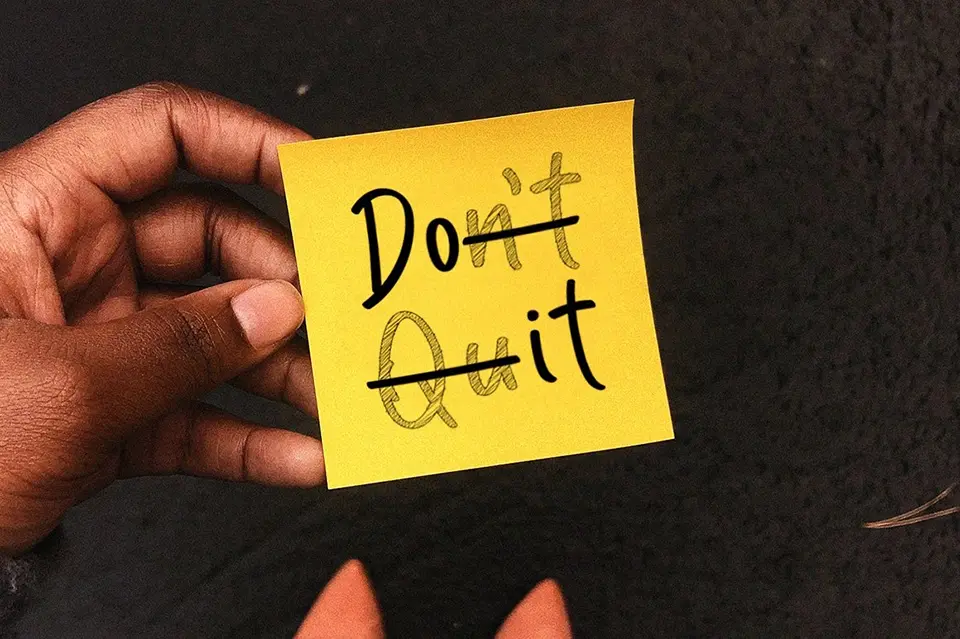 Don't
Quit